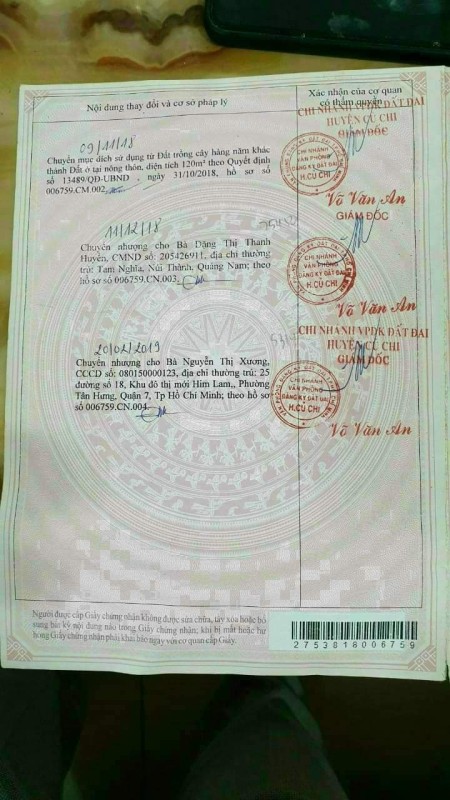 Nội dung thay đổi và cơ sở pháp lý
Xác nhận của cơ quan
có thẩm quyền
09/11/18
Chuyển mục đích sử dụng từ Đất trồng cây hàng năm khác
thành Đất ở tại nông thôn, diện tích 120m² theo Quyết định
số 13489/QĐ-UBND ngày 31/10/2018, hồ sơ số
006759.CM.002
CHI NHÁNH VPDK ĐẤT ĐAI
HUYỆN CỦ CHI
GIÁM ĐỐC
CHI NHÁNH
VĂN PHÒNG
ĐĂNG KÝ ĐẤT ĐAI
H.CỦ CHI
Võ Văn An
GIÁM ĐỐC
11/12/18
Chuyển nhượng cho Bà Đặng Thị Thanh
Huyền, CMND số: 205426911, địa chỉ thường
trú: Tam Nghĩa, Núi Thành, Quảng Nam; theo
hồ sơ số 006759.CN.003
CHI NHÁNH
VĂN PHÒNG
ĐĂNG KÝ ĐẤT ĐAI
H.CỦ CHI
Võ Văn An
20/02/2019
Chuyển nhượng cho Bà Nguyễn Thị Xương,
CCCD số: 080150000123, địa chỉ thường trú: 25
đường số 18, Khu đô thị mới Him Lam,, Phường
Tân Hưng, Quận 7, Tp Hồ Chí Minh; theo hồ sơ
số 006759.CN.004
CHI NHÁNH VPDK ĐẤT ĐAI
HUYỆN CỦ CHI
GIÁM ĐỐC
CHI NHÁNH
VĂN PHÒNG
ĐĂNG KÝ ĐẤT ĐAI
H.CỦ CHI
Võ Văn An
Người được cấp Giấy chứng nhận không được sửa chữa, tẩy xóa hoặc bổ
sung bất kỳ nội dung nào trong Giấy chứng nhận; khi bị mất hoặc hư
hỏng Giấy chứng nhận phải khai báo ngay với cơ quan cấp Giấy.
2753818006759